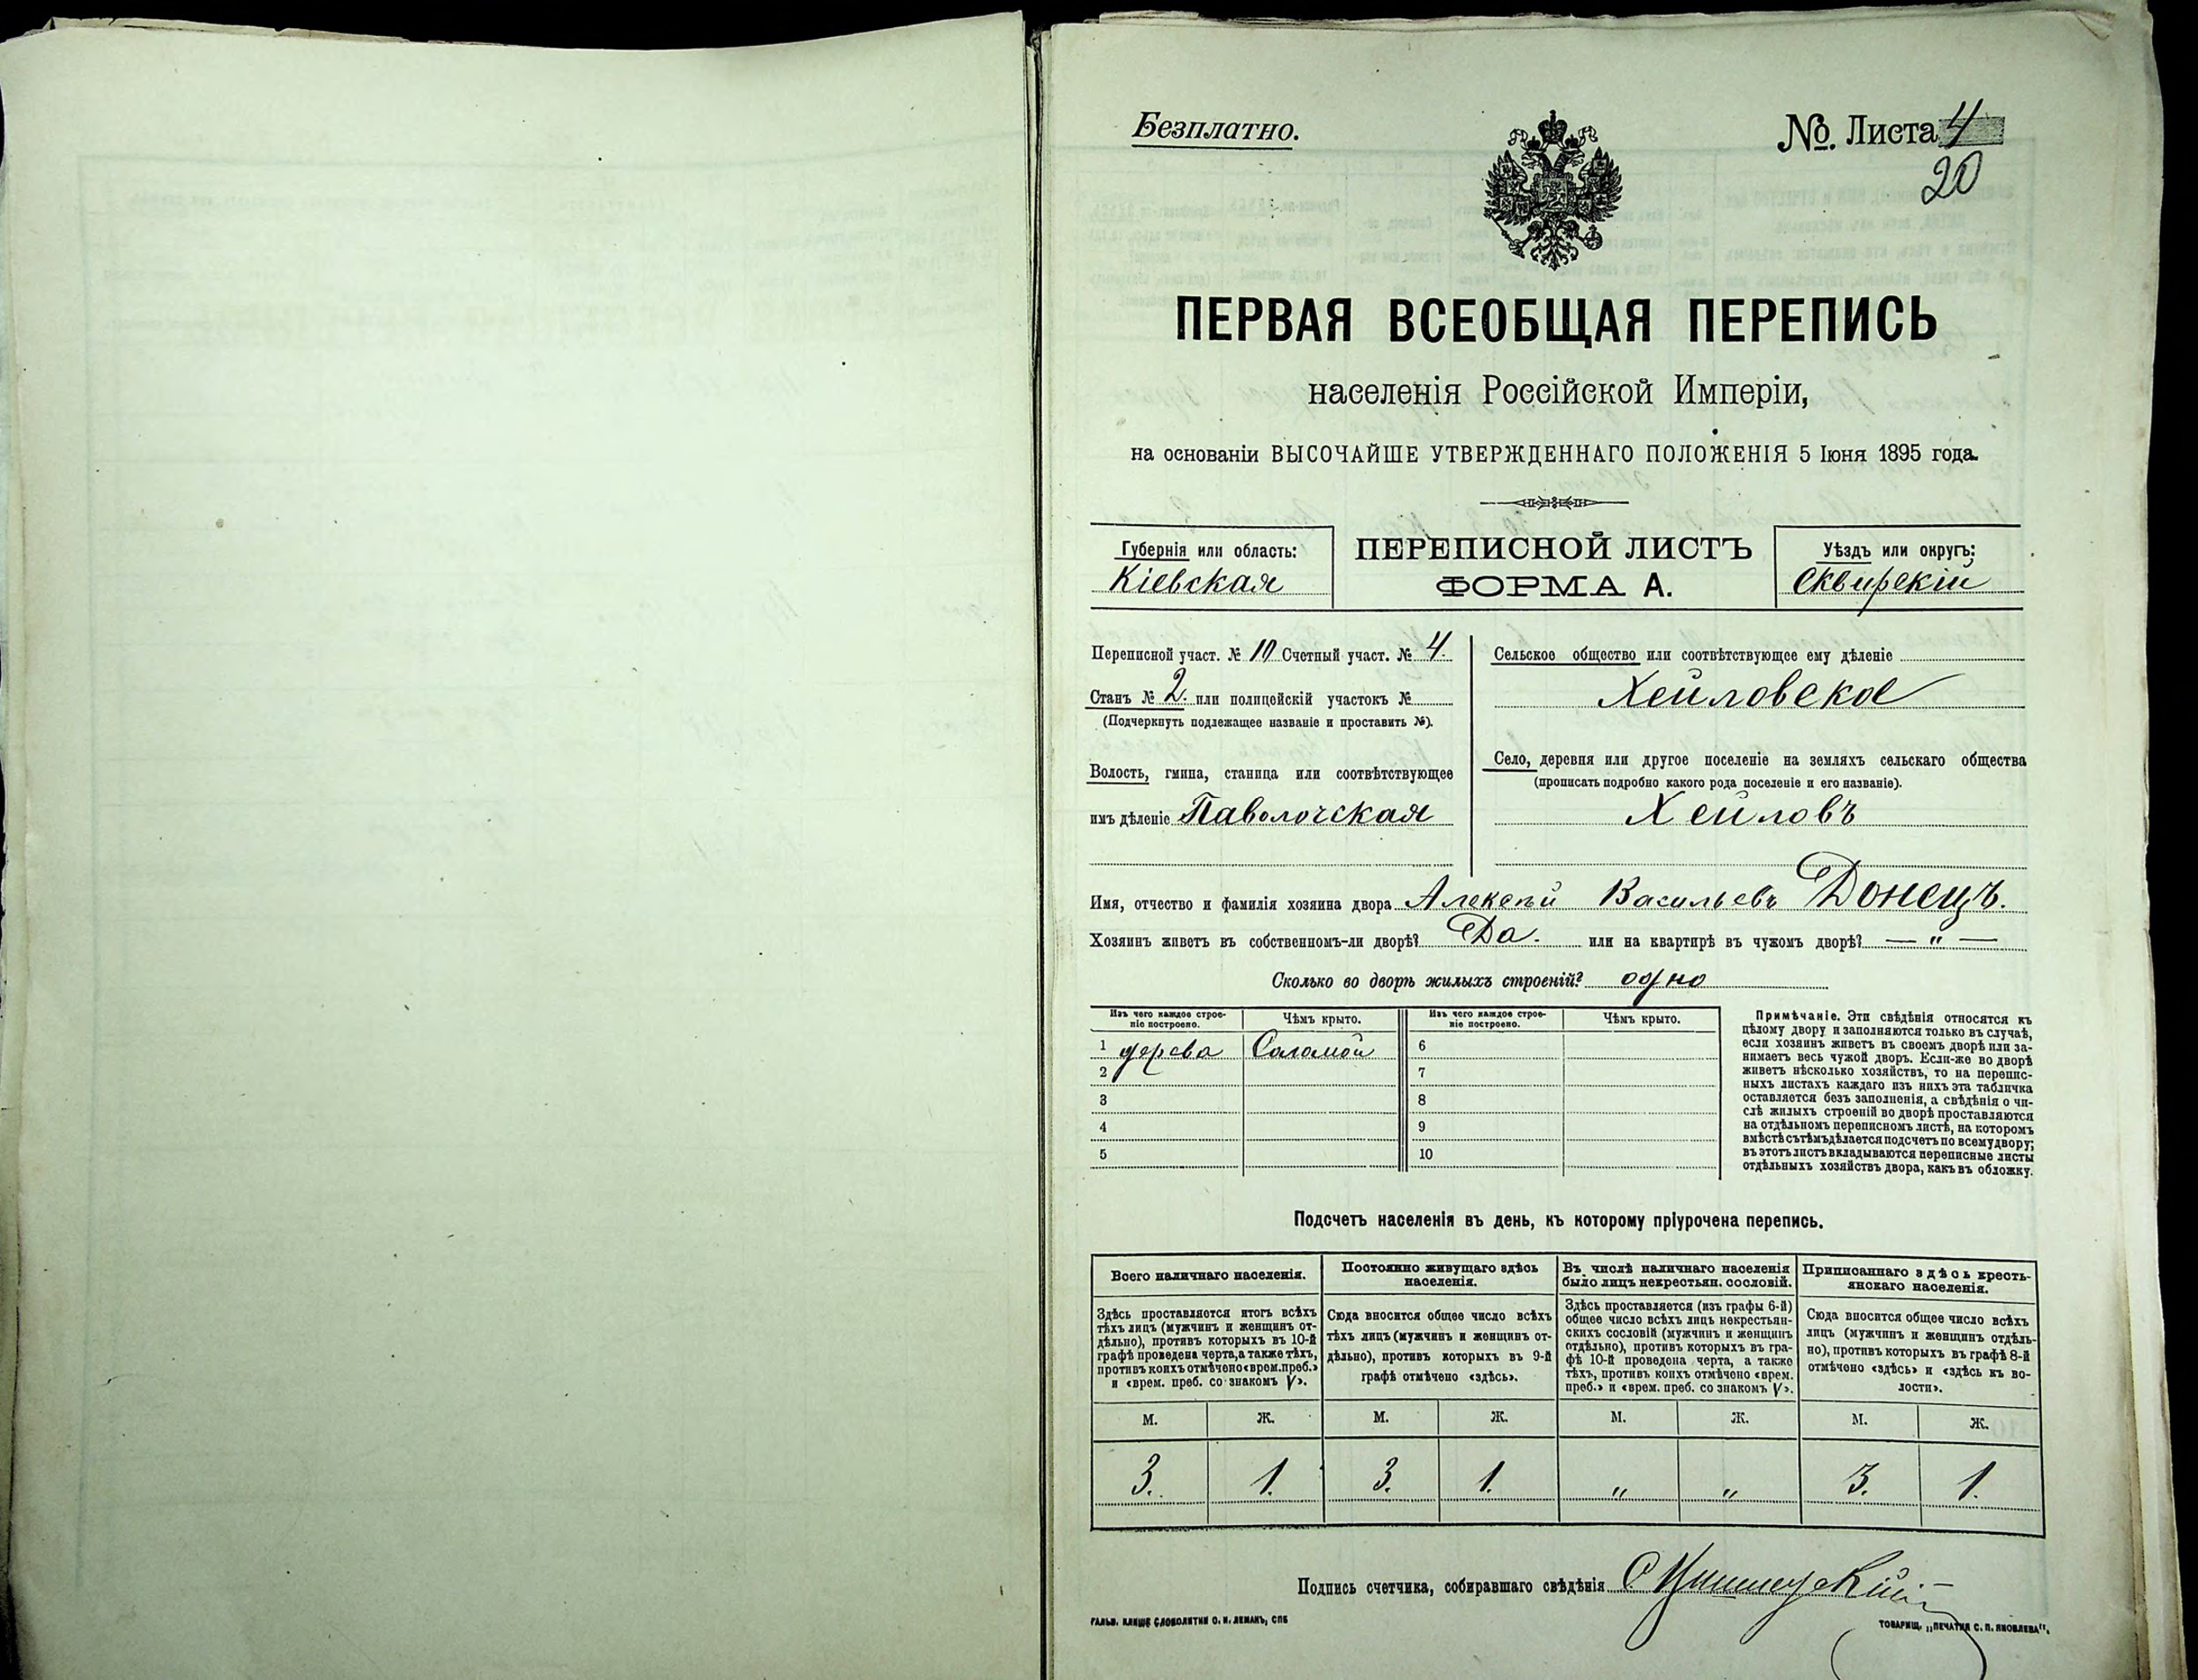 Безплатно.
№. Листа 4
20
ПЕРВАЯ ВСЕОБЩАЯ ПЕРЕПИСЬ
населенія Россійской Имперіи,
на основаніи ВЫСОЧАЙШЕ УТВЕРЖДЕННАГО ПОЛОЖЕНІЯ 5 Іюня 1895 года.
Губернія или область:
Кіевская
ПЕРЕПИСНОЙ ЛИСТЪ
ФОРМА А.
Уѣздъ или округъ:
Сквирскій
Переписной участ. № 10 Счетный участ. № 4.
Станъ № 2. или полицейскій участокъ №
(Подчеркнуть подлежащее названіе и проставить №).
Волость, гмина, станица или соотвѣтствующее
имъ дѣленіе Паволочская
Сельское общество или соотвѣтствующее ему дѣленіе
Хейловское
Село, деревня или другое поселеніе на земляхъ сельскаго общества
(прописать подробно какого рода поселеніе и его названіе).
Хейловъ
Имя, отчество и фамилія хозяина двора Алексѣй Васильевъ Донецъ.
Хозяинъ живетъ въ собственномъ-ли дворѣ? Да. или на квартирѣ въ чужомъ дворѣ? — „ —
Сколько во дворѣ жилыхъ строеній? одно
Изъ чего каждое строе-
ніе построено.
Чѣмъ крыто.
Изъ чего каждое строе-
ніе построено.
Чѣмъ крыто.
1 дерева Саломой 6
2 7
3 8
4 9
5 10
Примѣчаніе. Эти свѣдѣнія относятся къ
цѣлому двору и заполняются только въ случаѣ,
если хозяинъ живетъ въ своемъ дворѣ или за-
нимаетъ весь чужой дворъ. Если-же во дворѣ
живетъ нѣсколько хозяйствъ, то на перепис-
ныхъ листахъ каждаго изъ нихъ эта табличка
оставляется безъ заполненія, а свѣдѣнія о чи-
слѣ жилыхъ строеній во дворѣ проставляются
на отдѣльномъ переписномъ листѣ, на которомъ
вмѣстѣ съ тѣмъ дѣлается подсчетъ по всему двору;
въ этотъ листъ вкладываются переписные листы
отдѣльныхъ хозяйствъ двора, какъ въ обложку.
Подсчетъ населенія въ день, къ которому пріурочена перепись.
Всего наличнаго населенія.
Здѣсь проставляется итогъ всѣхъ
тѣхъ лицъ (мужчинъ и женщинъ от-
дѣльно), противъ которыхъ въ 10-й
графѣ проведена черта, а также тѣхъ,
противъ коихъ отмѣчено «врем. преб.»
и «врем. преб. со знакомъ V».
Постоянно живущаго здѣсь
населенія.
Сюда вносится общее число всѣхъ
тѣхъ лицъ (мужчинъ и женщинъ от-
дѣльно), противъ которыхъ въ 9-й
графѣ отмѣчено «здѣсь».
Въ числѣ наличнаго населенія
было лицъ некрестьян. сословій.
Здѣсь проставляется (изъ графы 6-й)
общее число всѣхъ лицъ некрестьян-
скихъ сословій (мужчинъ и женщинъ
отдѣльно), противъ которыхъ въ гра-
фѣ 10-й проведена черта, а также
тѣхъ, противъ коихъ отмѣчено «врем.
преб.» и «врем. преб. со знакомъ V».
Приписаннаго здѣсь кресть-
янскаго населенія.
Сюда вносится общее число всѣхъ
лицъ (мужчинъ и женщинъ отдѣль-
но), противъ которыхъ въ графѣ 8-й
отмѣчено «здѣсь» и «здѣсь къ во-
лости».
М. Ж. М. Ж. М. Ж. М. Ж.
3. 1. 3. 1. „ „ 3. 1.
Подпись счетчика, собиравшаго свѣдѣнія
ГАЛЬВ. КЛИШЕ СЛОВОЛИТНИ О. И. ЛЕМАНЪ, СПБ
ТОВАРИЩ. „ПЕЧАТНЯ С. П. ЯКОВЛЕВА".